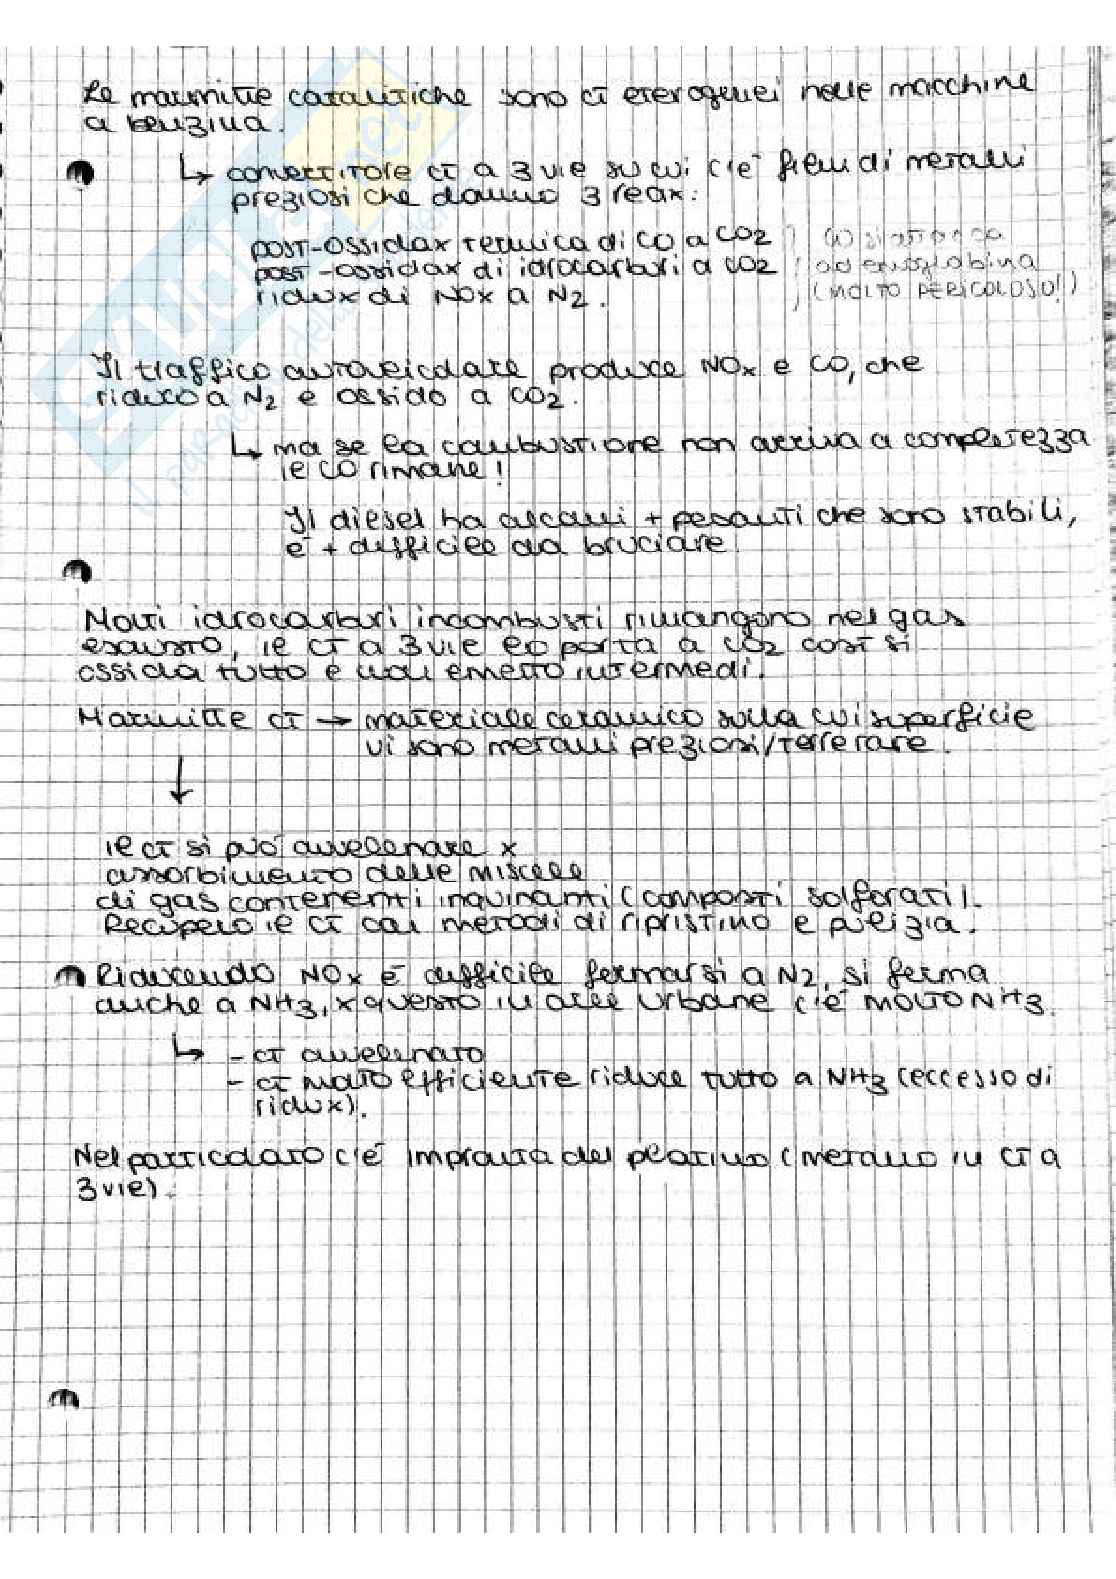 Le marmitte catalitiche sono ct eterogenei nelle macchine
a benzina.
↳ convertitore ct a 3 vie su cui c'è films di metalli
preziosi che danno 3 reax:
post-ossidax termica di CO a CO2
post-ossidax di idrocarburi a CO2
ridux di NOx a N2.
CO si attacca
ad emoglobina
(MOLTO PERICOLOSO!)
Il traffico autoveicolare produce NOx e CO, che
riduco a N2 e ossido a CO2.
↳ ma se la combustione non arriva a completezza
il CO rimane!
Il diesel ha alcani + pesanti che sono stabili,
è + difficile da bruciare.
Molti idrocarburi incombusti rimangono nel gas
esausto, il ct a 3 vie lo porta a CO2 così si
ossida tutto e non emetto intermedi.
Marmitte ct → materiale ceramico sulla cui superficie
vi sono metalli preziosi/terre rare.
↓
il ct si può avvelenare x
assorbimento delle miscele
di gas contenenti inquinanti (composti solforati).
Recupero il ct coi metodi di ripristino e pulizia.
Riducendo NOx è difficile fermarsi a N2, si ferma
anche a NH3, x questo in aree urbane c'è molto NH3.
↳ - ct avvelenato
- ct molto efficiente riduce tutto a NH3 (eccesso di
ridux).
Nel particolato c'è impronta del platino (metallo in ct a
3 vie).